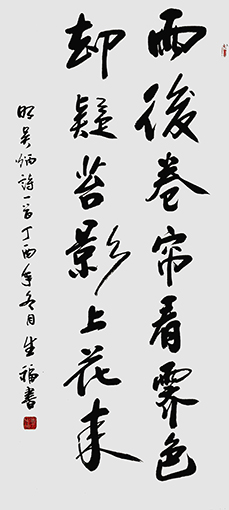 雨後卷帘看霽色
却疑苔影上花来
明吴炳詩一首丁酉年冬月生福書